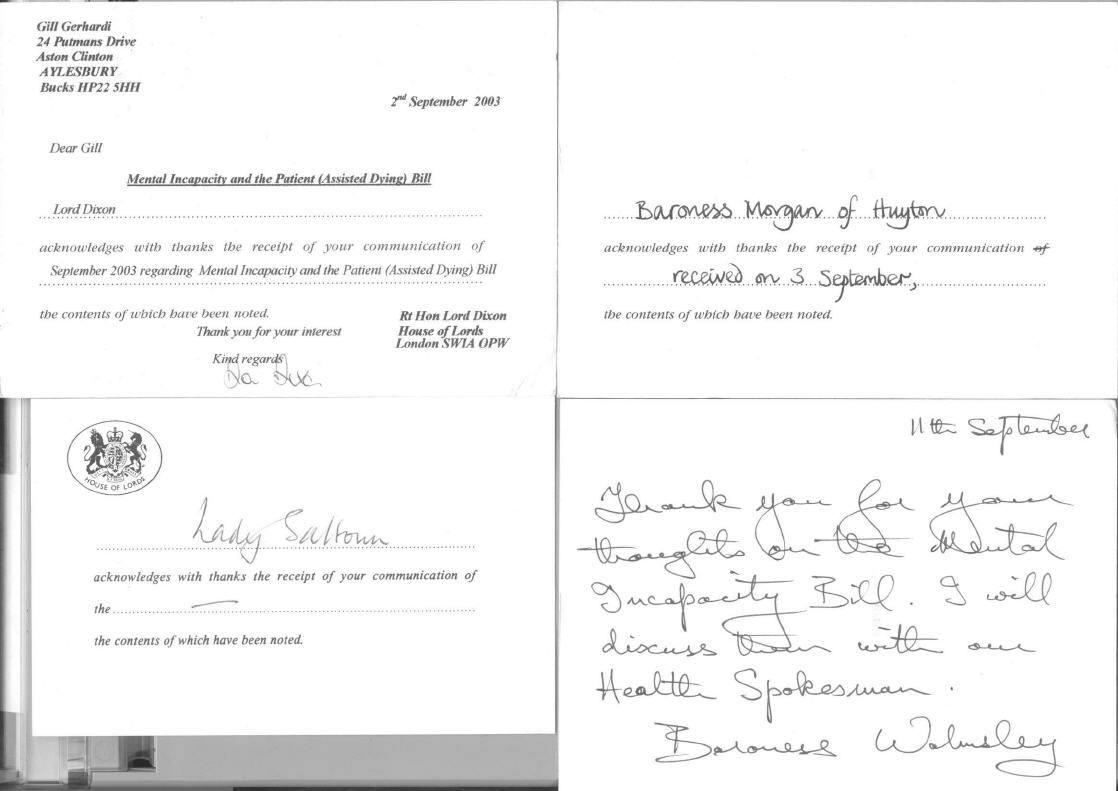 Gill Gerhardi
24 Putmans Drive
Aston Clinton
AYLESBURY
Bucks HP22 5HH
2nd September 2003
Dear Gill
Mental Incapacity and the Patient (Assisted Dying) Bill
Lord Dixon
acknowledges with thanks the receipt of your communication of
September 2003 regarding Mental Incapacity and the Patient (Assisted Dying) Bill
the contents of which have been noted.
Thank you for your interest
Kind regards
Rt Hon Lord Dixon
House of Lords
London SW1A OPW
Baroness Morgan of Huyton
acknowledges with thanks the receipt of your communication of
received on 3 September,
the contents of which have been noted.
HOUSE OF LORDS
Lady Saltoun
acknowledges with thanks the receipt of your communication of
the
the contents of which have been noted.
11th September
Thank you for your
thoughts on the Mental
Incapacity Bill. I will
discuss them with our
Health Spokesman.
Baroness Walmsley